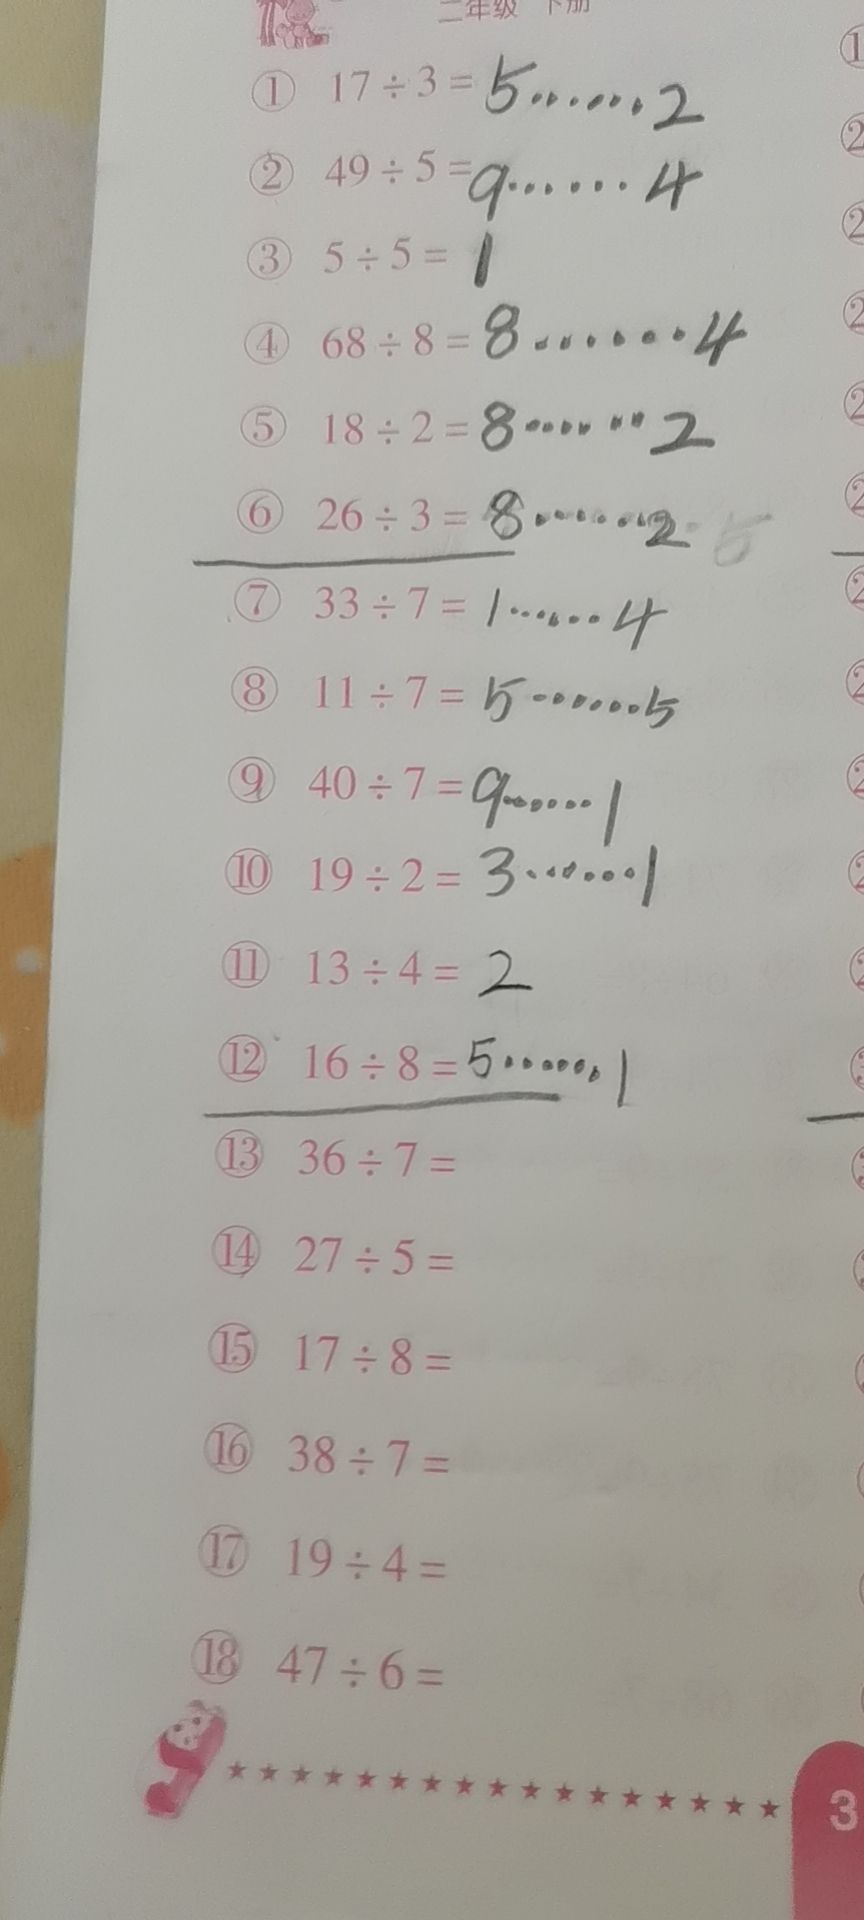 二年级 下册
① 17÷3=5……2
② 49÷5=9……4
③ 5÷5=1
④ 68÷8=8……4
⑤ 18÷2=8……2
⑥ 26÷3=8……2
⑦ 33÷7=1……4
⑧ 11÷7=5……5
⑨ 40÷7=9……1
⑩ 19÷2=3……1
⑪ 13÷4=2
⑫ 16÷8=5……1
⑬ 36÷7=
⑭ 27÷5=
⑮ 17÷8=
⑯ 38÷7=
⑰ 19÷4=
⑱ 47÷6=
3